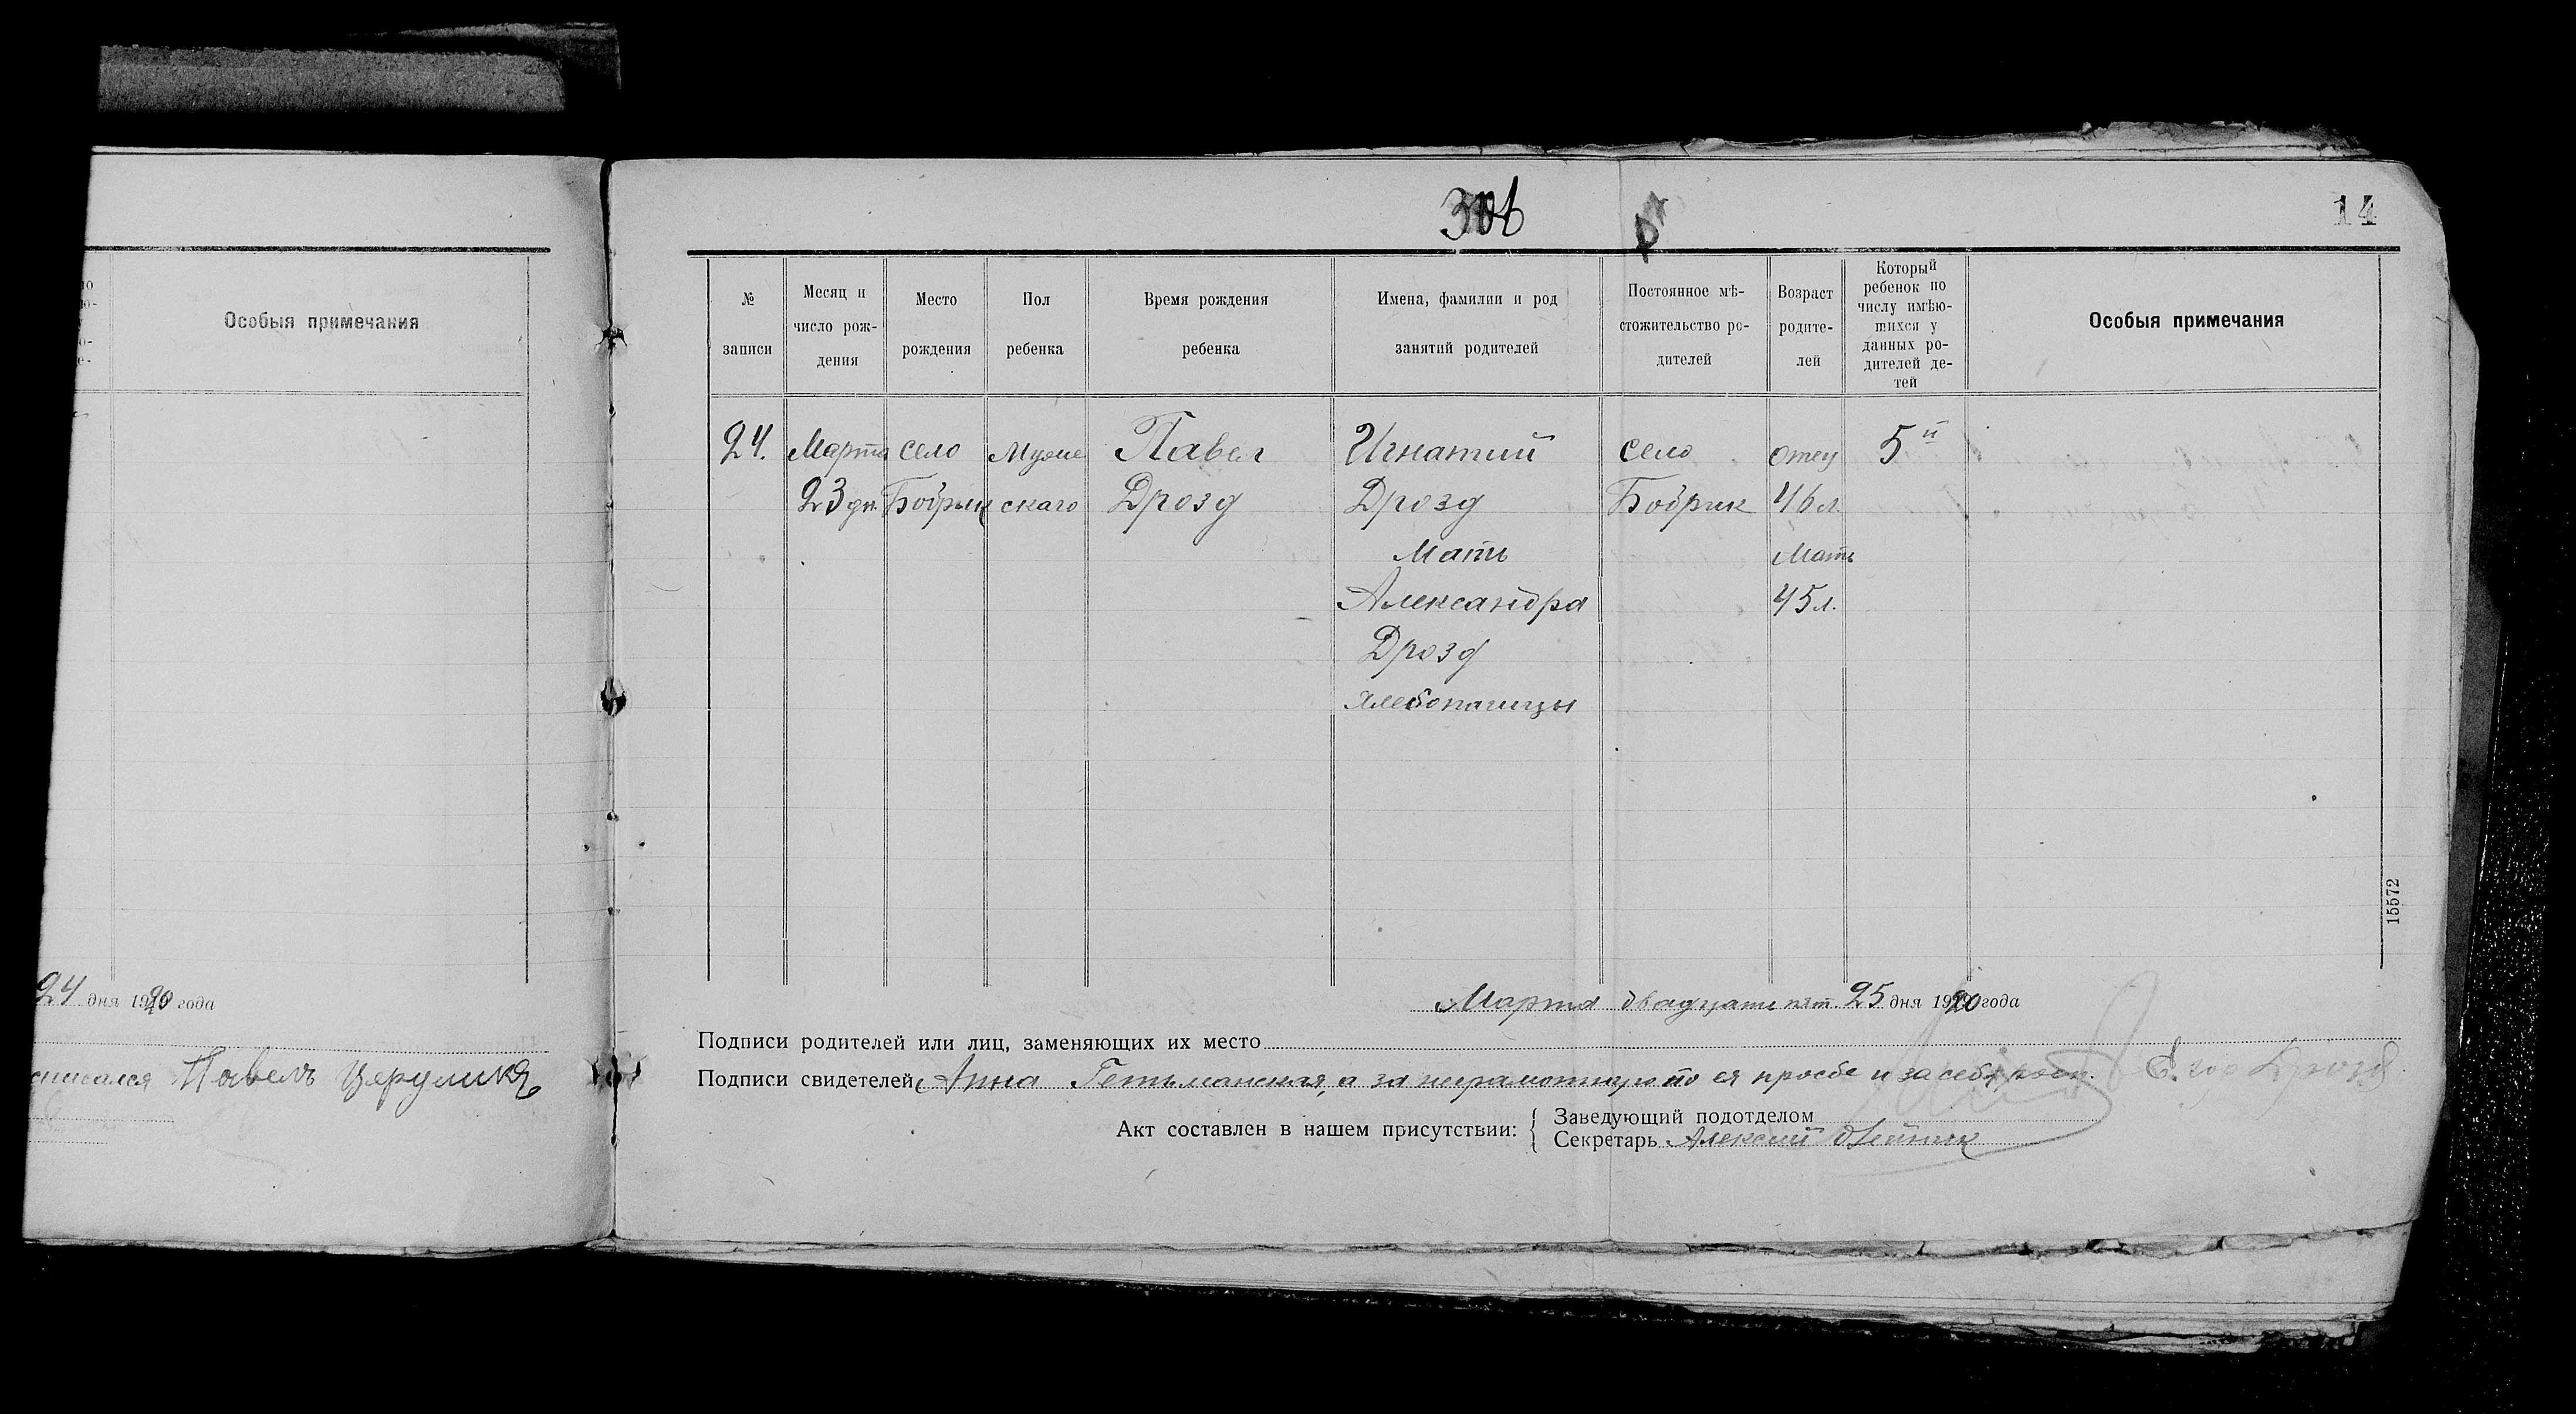 Особыя примечания
24 дня 1920 года
Павелъ Церулика
306
14
№ записи
Месяц и число рож-
дения
Место рождения
Пол ребенка
Время рождения ребенка
Имена, фамилии и род занятий родителей
Постоянное мѣ-
стожительство ро-
дителей
Возраст родите-
лей
Который ребенок по числу имѣю-
щихся у данных ро-
дителей де-
тей
Особыя примечания
24. Марта село Муже Павел Игнатий село отец 5й
23 дн. Бобрик скаго Дрозд Дрозд Бобрик 46 л.
Мать Мать
Александра 45 л.
Дрозд
хлебопашцы
15572
Марта двадцать пят. 25 дня 1920 года
Подписи родителей или лиц, заменяющих их место
Подписи свидетелей Анна Гетьманская, а за неграмотную по ея просбе и за себя росп. Егор Дрозд
Акт составлен в нашем присутствии:
Заведующий подотделом
Секретарь Алексий